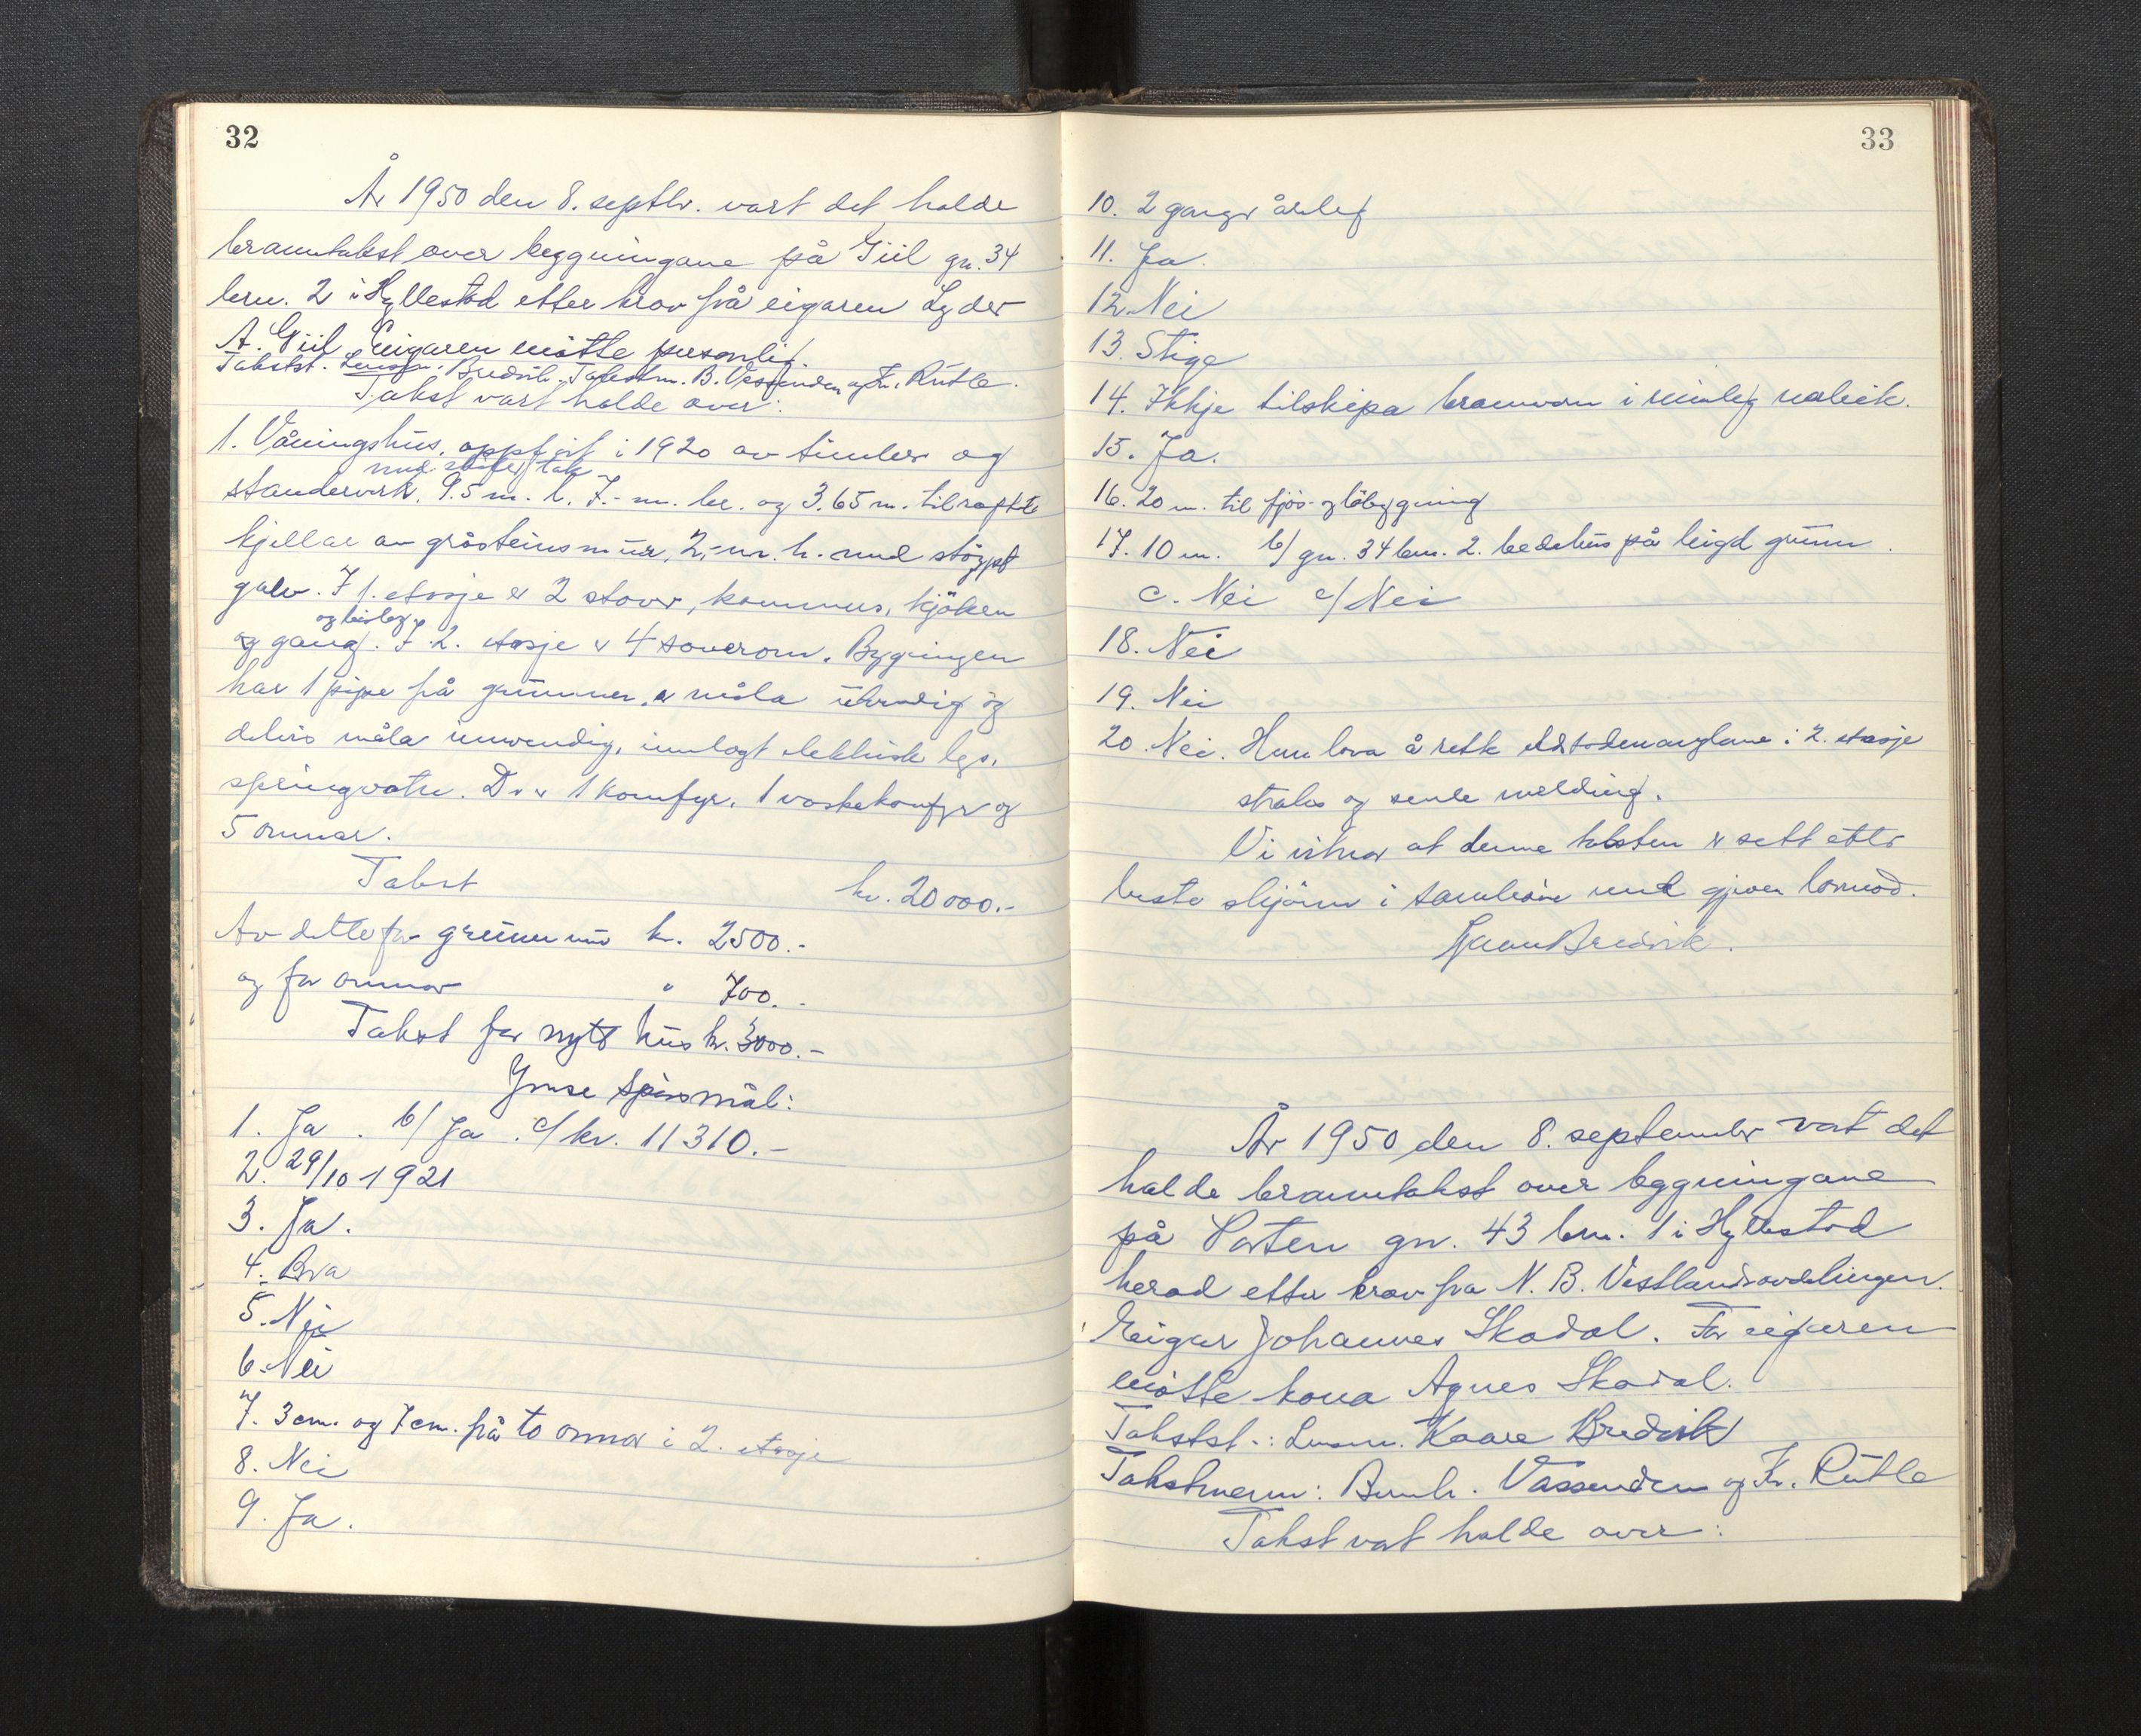 32
År 1950 den 8. septbr. vart det halde
branntakst over byggningane på Giil gn. 34
brn. 2 i Hyllestad etter krav frå eigaren Lyder
A. Giil. Eigaren møtte personlig.
Takstst. Lensm. Bredvik. Takstm. B. Vassenden og Kr. Rutle.
Takst vart halde over:
1. Våningshus, oppført i 1920 av timber og
med skifertak
standerverk. 9.5 m. l. 7.- m. br. og 3.65 m. til raft
kjellar av gråsteinsmur, 2,- m. h. med støypt
golv. I 1. etasje er 2 stover, kammers, kjøken
og bislag
og gang. I 2. etasje er 4 soverom. Bygningen
har 1 pipe frå grunnen, er måla utvendig og
delvis måla innvendig, innlagt elektrisk lys,
springvatn. Der er 1 komfyr, 1 vaskekomfyr og
5 omnar.
Takst kr. 20 000.-
Av dette for grunnmur kr. 2500.-
og for omnar " 700.-
Takst for nytt hus kr. 3000.-
Ymse spørsmål:
1. Ja. b/ Ja. c/ kr. 11310.-
2. 29/10 1921
3. Ja.
4. Bra
5. Nei
6. Nei
7. 3 cm. og 7 cm. frå to omnar i 2. etasje
8. Nei
9. Ja.
33
10. 2 gangr årleg
11. Ja.
12. Nei
13. Stige
14. Ikkje tilskipa brannvern i rimleg nærleik.
15. Ja.
16. 20 m. til fjøs- og løbygning
17. 10 m. b/ gn. 34 brn. 2. bedehus på leigd grunn.
c. Nei e/ Nei
18. Nei
19. Nei
20. Nei. Hun lova å rette eldstadmanglane i 2. etasje
straks og sende melding.
Vi vitnar at denne taksten er sett etter
beste skjønn i samhøve med gjeven lovnad.
Kaare Bredvik.
År 1950 den 8. september vart det
halde branntakst over byggningane
på Porten gn. 43 brn. 1 i Hyllestad
herad etter krav fra N. B. Vestlandsavdelingen.
Eigar Johannes Skadal. For eigaren
møtte kona Agnes Skadal.
Takstst.: Lensm. Kaare Bredvik
Takstmenn: Bernh. Vassenden og Kr. Rutle
Takst vart halde over: